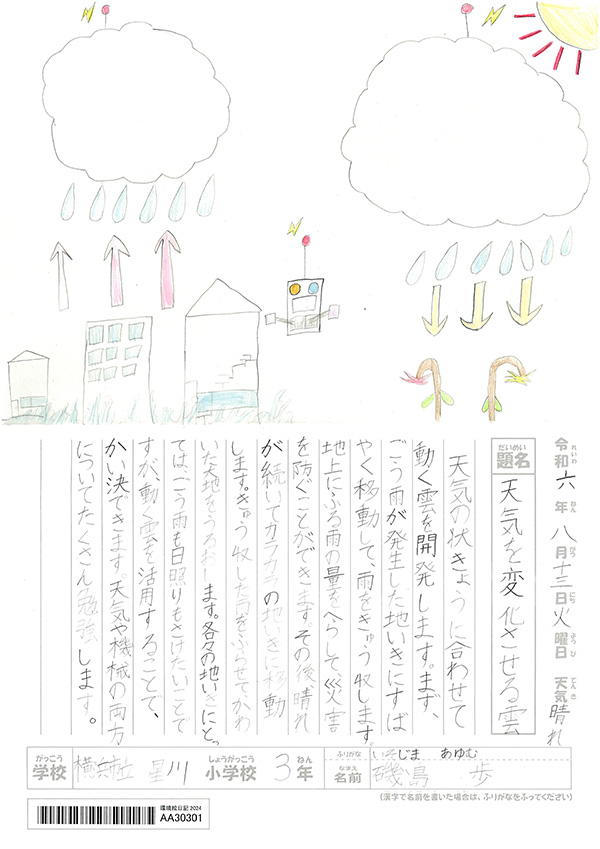 令和六年八月十三日火曜日 天気晴れ
題名 天気を変化させる雲
天気の状きょうに合わせて
動く雲を開発します。まず、
ごう雨が発生した地いきにすば
やく移動して、雨をきゅう収します。
地上にふる雨の量をへらして災害
を防ぐことができます。その後、晴れ
が続いてカラカラの地いきに移動
します。きゅう収した雨をふらせてかわ
いた地をうるおします。各々の地いきにとっ
ては、ごう雨も日照りもさけたいことで
すが、動く雲を活用することで、
かい決できます。天気や機械の両方
についてたくさん勉強します。
学校 横浜市立 星川 小学校 3年 名前 磯島 歩
がっこう しょうがっこう ねん ふりがな なまえ いそじま あゆむ
(漢字で名前を書いた場合は、ふりがなをふってください)
環境絵日記 2024
AA30301